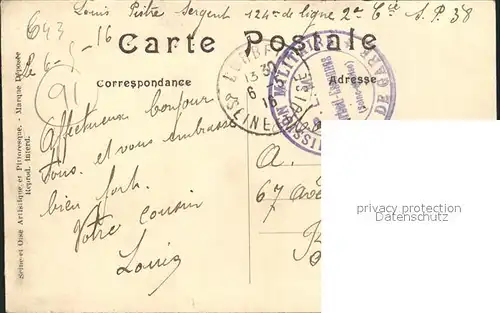 Louis Pistre Sergent 124e de ligne 2e Cie S.P. 38
643
Le 6-5-16
Carte Postale
Correspondance
Adresse
91
13 30
6
16
(SEINE
MILIT
DE GARE
Affectueux bonjour
Tous. et vous embrasse
bien fort.
Votre cousin
Louis
A.
67
Seine et Oise Artistique et Pittoresque. - Marque Déposée
Reprod. Interd.
privacy protection
Datenschutz